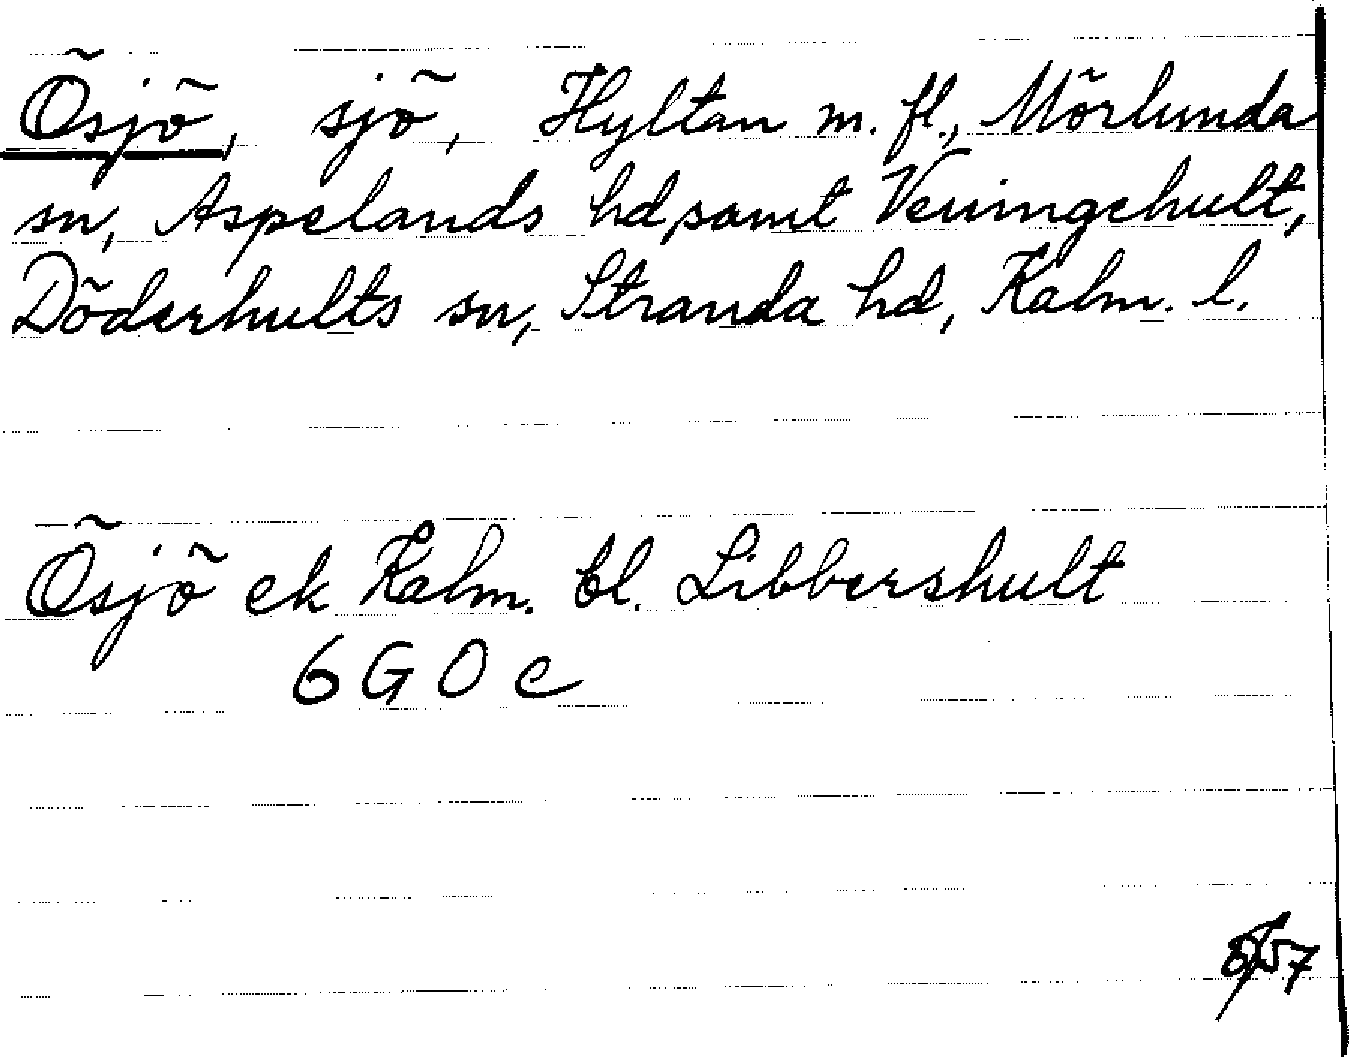 Ösjö, sjö, Hyltan m. fl., Mörlunda
sn, Aspelands hd, samt Veungehult,
Döderhults sn, Stranda hd, Kalm. l.
Ösjö ek Kalm. bl. Libbershult
6 G 0 c